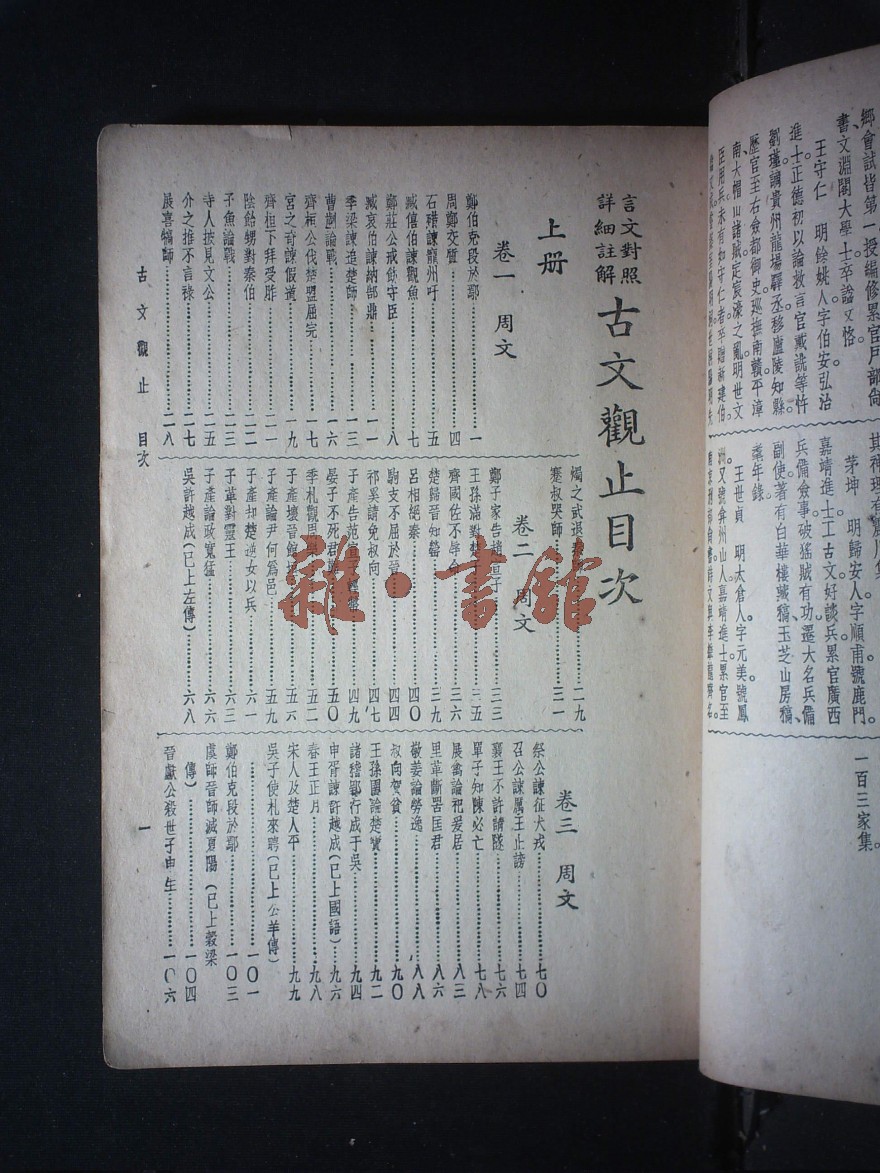 鄉會試皆第一授編修累官戶部尚
書文淵閣大學士卒諡文恪。
王守仁 明餘姚人字伯安弘治
進士正德初以論救言官戴銑等忤
劉瑾謫貴州龍場驛丞移廬陵知縣
歷官至右僉都御史巡撫南贛平漳
南大帽山諸賊定宸濠之亂明世文
臣用兵未有如守仁者卒贈新建伯。
茅坤 明歸安人字順甫號鹿門。
嘉靖進士工古文好談兵累官廣西
兵備僉事破猺賊有功遷大名兵備
副使著有白華樓藏稿、玉芝山房稿、
耄年錄。
王世貞 明太倉人字元美號鳳
洲又號弇州山人嘉靖進士累官至
一百三家集。
言文對照
詳細註解
古文觀止目次
上册
卷一 周文
鄭伯克段於鄢……一
周鄭交質……四
石碏諫寵州吁……五
臧僖伯諫觀魚……七
鄭莊公戒飭守臣……八
臧哀伯諫納郜鼎……一一
季梁諫追楚師……一三
曹劌論戰……一六
齊桓公伐楚盟屈完……一七
宮之奇諫假道……一九
齊桓下拜受胙……二一
陰飴甥對秦伯……二二
子魚論戰……二三
寺人披見文公……二五
介之推不言祿……二七
展喜犒師……二八
燭之武退……二九
蹇叔哭師……三一
卷二 周文
鄭子家告趙宣子……三三
王孫滿對楚……三五
齊國佐不辱命……三六
楚歸晉知罃……三九
呂相絕秦……四〇
駒支不屈於晉……四四
祁奚請免叔向……四七
子產告范宣……四九
晏子不死君……五〇
季札觀周樂……五二
子產壞晉館……五六
子產論尹何爲邑……五九
子產却楚逆女以兵……六一
子革對靈王……六三
子產論政寬猛……六六
吳許越成(已上左傳)……六八
卷三 周文
祭公諫征犬戎……七〇
召公諫厲王止謗……七四
襄王不許請隧……七六
單子知陳必亡……七八
展禽論祀爰居……八三
里革斷罟匡君……八六
敬姜論勞逸……八八
叔向賀貧……九〇
王孫圉論楚寶……九二
諸稽郢行成于吳……九四
申胥諫許越成(已上國語)……九六
春王正月……九八
宋人及楚人平……九九
吳子使札來聘(已上公羊傳)
……一〇一
鄭伯克段於鄢……一〇三
虞師晉師滅夏陽(已上穀梁
傳)……一〇四
晉獻公殺世子申生……一〇六
古文觀止 目次
一
雜·書館